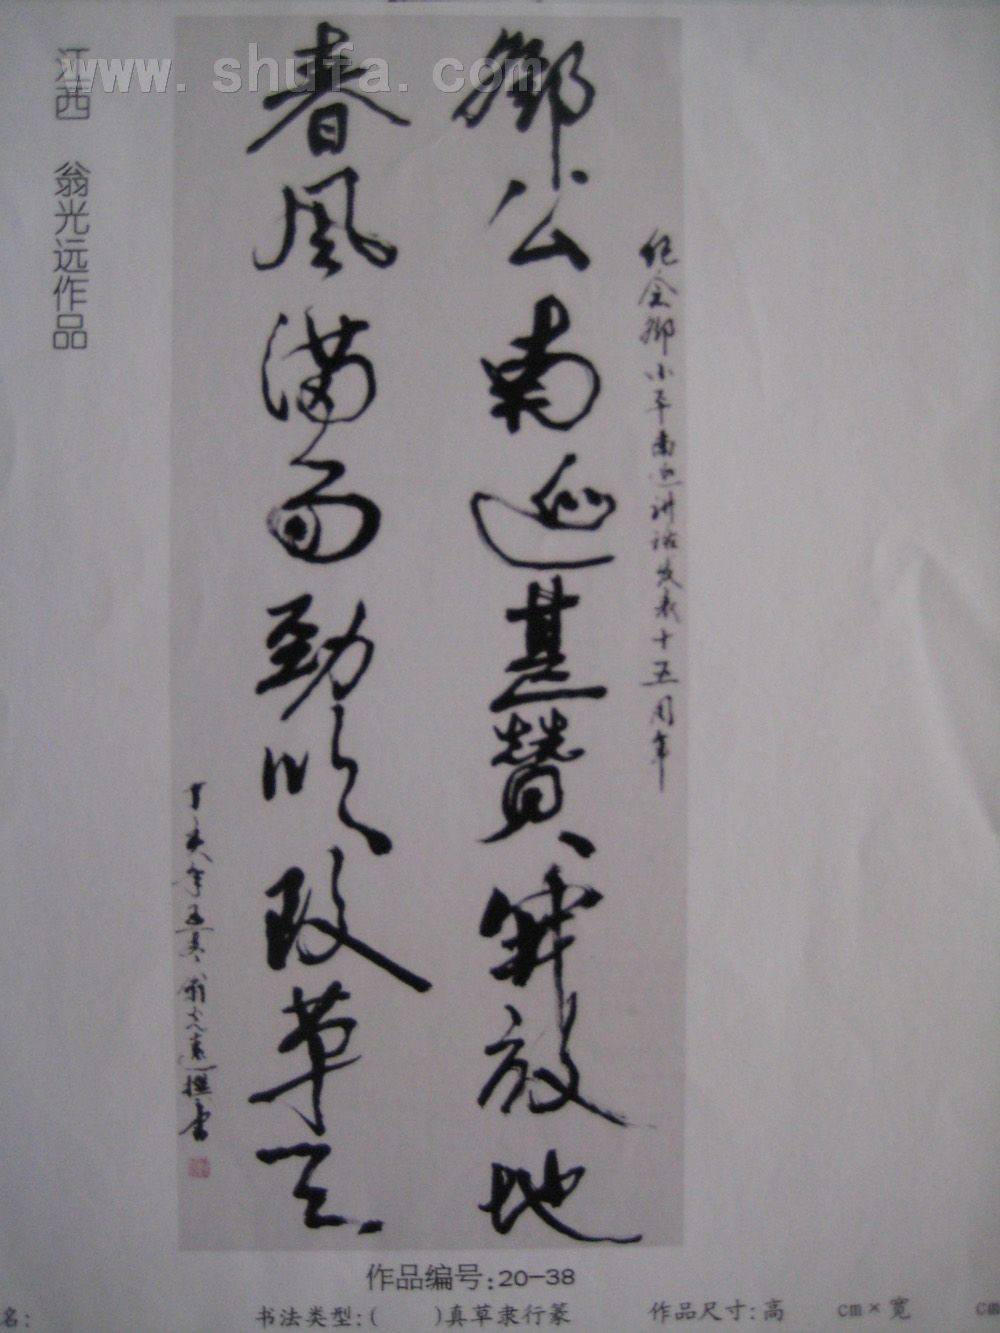 www.shufa.com
江西 翁光远作品
纪念鄧小平南巡讲话发表十五周年
鄧公南巡甚贊放地
春風滿面勁改革天
丁亥年翁光遠撰書
作品编号:20-38
名:
书法类型:( )真草隶行篆
作品尺寸:高 cm×宽 cm